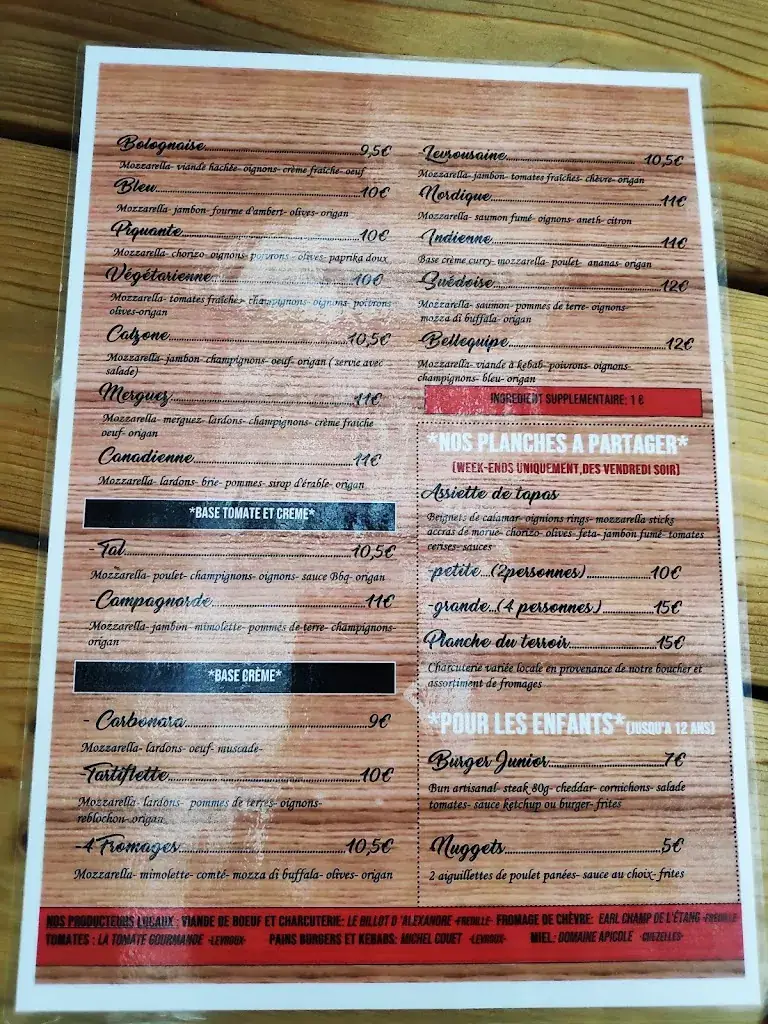 Bolognaise 9,5€
Mozzarella- viande hachée- oignons- crème fraîche- oeuf
Bleu 10€
Mozzarella- jambon- fourme d'ambert- olives- origan
Piquante 10€
Mozzarella- chorizo- oignons- poivrons - olives- paprika doux
Végétarienne 10€
Mozzarella- tomates fraîches- champignons- oignons- poivrons
olives-origan
Calzone 10,5€
Mozzarella- jambon- champignons- oeuf- origan ( servie avec
salade)
Merguez 11€
Mozzarella- merguez- lardons- champignons- crème fraîche
oeuf- origan
Canadienne 11€
Mozzarella- lardons- brie- pommes- sirop d'érable- origan
*BASE TOMATE ET CREME*
- Tal 10,5€
Mozzarella- poulet- champignons- oignons- sauce Bbq- origan
-Campagnarde 11€
Mozzarella- jambon- mimolette- pommes de terre- champignons-
origan
*BASE CRÈME*
- Carbonara 9€
Mozzarella- lardons- oeuf- muscade-
-Tartiflette 10€
Mozzarella- lardons- pommes de terres- oignons-
reblochon- origan
-4 Fromages 10,5€
Mozzarella- mimolette- comté- mozza di buffala- olives- origan
-Levrousaine 10,5€
Mozzarella- jambon- tomates fraîches- chèvre- origan
Nordique 11€
Mozzarella- saumon fumé- oignons- aneth- citron
Indienne 11€
Base crème curry- mozzarella- poulet- ananas- origan
Suédoise 12€
Mozzarella- saumon- pommes de terre- oignons-
mozza di buffala- origan
-Bellequipe 12€
Mozzarella- viande à kebab- poivrons- oignons-
champignons- bleu- origan
INGREDIENT SUPPLEMENTAIRE; 1 €
*NOS PLANCHES A PARTAGER*
(WEEK-ENDS UNIQUEMENT,DES VENDREDI SOIR)
Assiette de tapas
Beignets de calamar- oignions rings- mozzarella sticks
accras de morue- chorizo- olives- feta- jambon fumé- tomates
cerises- sauces
-petite...(2personnes) 10€
-grande...(4 personnes) 15€
Planche du terroir 15€
Charcuterie variée locale en provenance de notre boucher et
assortiment de fromages
*POUR LES ENFANTS* (JUSQU'A 12 ANS)
Burger Junior 7€
Bun artisanal- steak 80g- cheddar- cornichons- salade
tomates- sauce ketchup ou burger- frites
Nuggets 5€
2 aiguillettes de poulet panées- sauce au choix- frites
NOS PRODUCTEURS LOCAUX : VIANDE DE BOEUF ET CHARCUTERIE: LE BILLOT D 'ALEXANDRE -FREDILLE- FROMAGE DE CHÈVRE: EARL CHAMP DE L'ÉTANG -FREDILLE-
TOMATES : LA TOMATE GOURMANDE -LEVROUX- PAINS BURGERS ET KEBABS: MICHEL COUET -LEVROUX- MIEL: DOMAINE APICOLE -CHEZELLES-